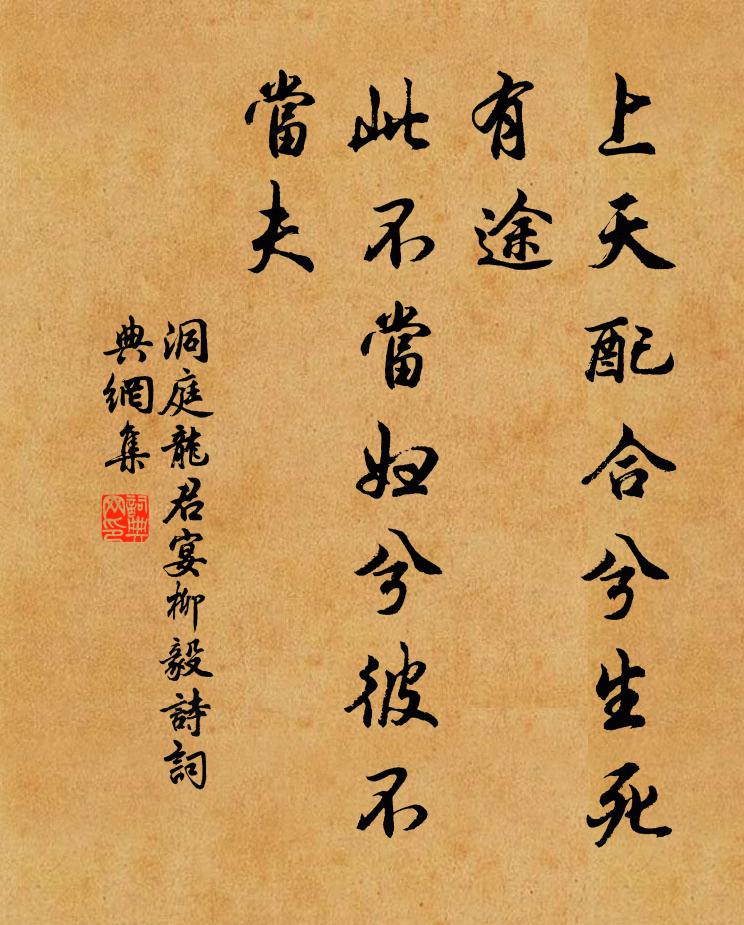 上天配合兮生死
有途
此不當妇兮彼不
當夫
洞庭龍君宴柳毅詩詞
典網集
詞典
网印